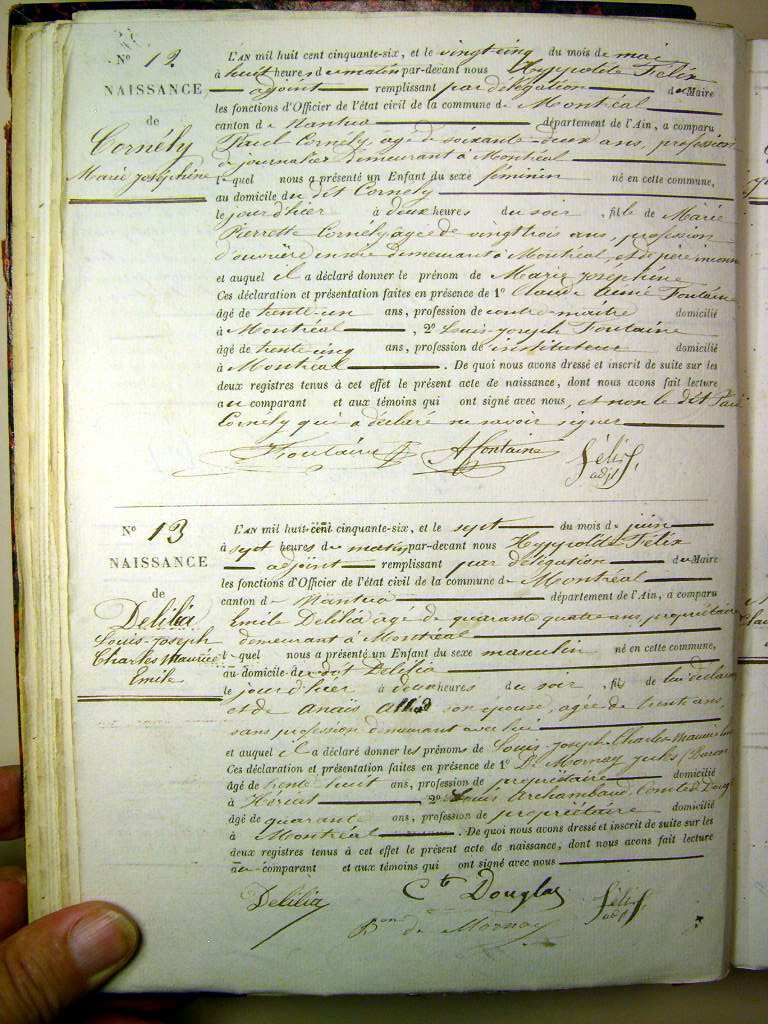 N° 12
NAISSANCE
de
Cornély
Marie Joséphine
L'AN mil huit cent cinquante-six, et le vingt cinq du mois de mai
à huit heures du matin par-devant nous Hyppolite Félix
adjoint remplissant par délégation du Maire
les fonctions d'Officier de l'état civil de la commune de Montréal
canton de Nantua département de l'Ain, a comparu
Paul Cornély, agé de soixante-deux ans, profession
de journalier demeurant à Montréal
lequel nous a présenté un Enfant du sexe féminin né en cette commune,
au domicile du dit Cornely
le jour d'hier à deux heures du soir, fille de Marie
Pierrette Cornely agée de vingt trois ans, profession
d'ouvrière en soie demeurant à Montréal, et de père inconnu
et auquel il a déclaré donner le prénom de Marie Joséphine
Ces déclaration et présentation faites en présence de 1° Claude Aimé Fontaine
âgé de trente-un ans, profession de contre-maitre domicilié
à Montréal, 2° Louis-Joseph Fontaine
âgé de trente cinq ans, profession de instituteur domicilié
à Montréal. De quoi nous avons dressé et inscrit de suite sur les
deux registres tenus à cet effet le présent acte de naissance, dont nous avons fait lecture
au comparant et aux témoins qui ont signé avec nous, et non le dit Paul
Cornely qui a déclaré ne savoir signer
Fontaine A Fontaine Félix
adjt
N° 13
NAISSANCE
de
Delilia
Louis-Joseph
Charles Maurice
Emile
L'AN mil huit-cent cinquante-six, et le sept du mois de juin
à sept heures du matin par-devant nous Hyppolite Félix
adjoint remplissant par délégation du Maire
les fonctions d'Officier de l'état civil de la commune de Montréal
canton de Nantua département de l'Ain, a comparu
Emile Delilia agé de quarante quatre ans, propriétaire
demeurant à Montréal
lequel nous a présenté un Enfant du sexe masculin né en cette commune,
au domicile du dit Delilia
le jour d'hier à deux heures du soir, fils de lui déclarant
et de Anaïs son épouse, agée de trente ans,
sans profession demeurant avec lui
et auquel il a déclaré donner les prénoms de Louis-Joseph Charles Maurice
Ces déclaration et présentation faites en présence de 1° De Mornay Jules (Baron
âgé de trente huit ans, profession de propriétaire domicilié
à 2° Louis Archambaud, Comte de Douglas
âgé de quarante ans, profession de propriétaire domicilié
à Montréal. De quoi nous avons dressé et inscrit de suite sur les
deux registres tenus à cet effet le présent acte de naissance, dont nous avons fait lecture
au comparant et aux témoins qui ont signé avec nous
Delilia Cte Douglas Félix
adjt
Bon de Mornay